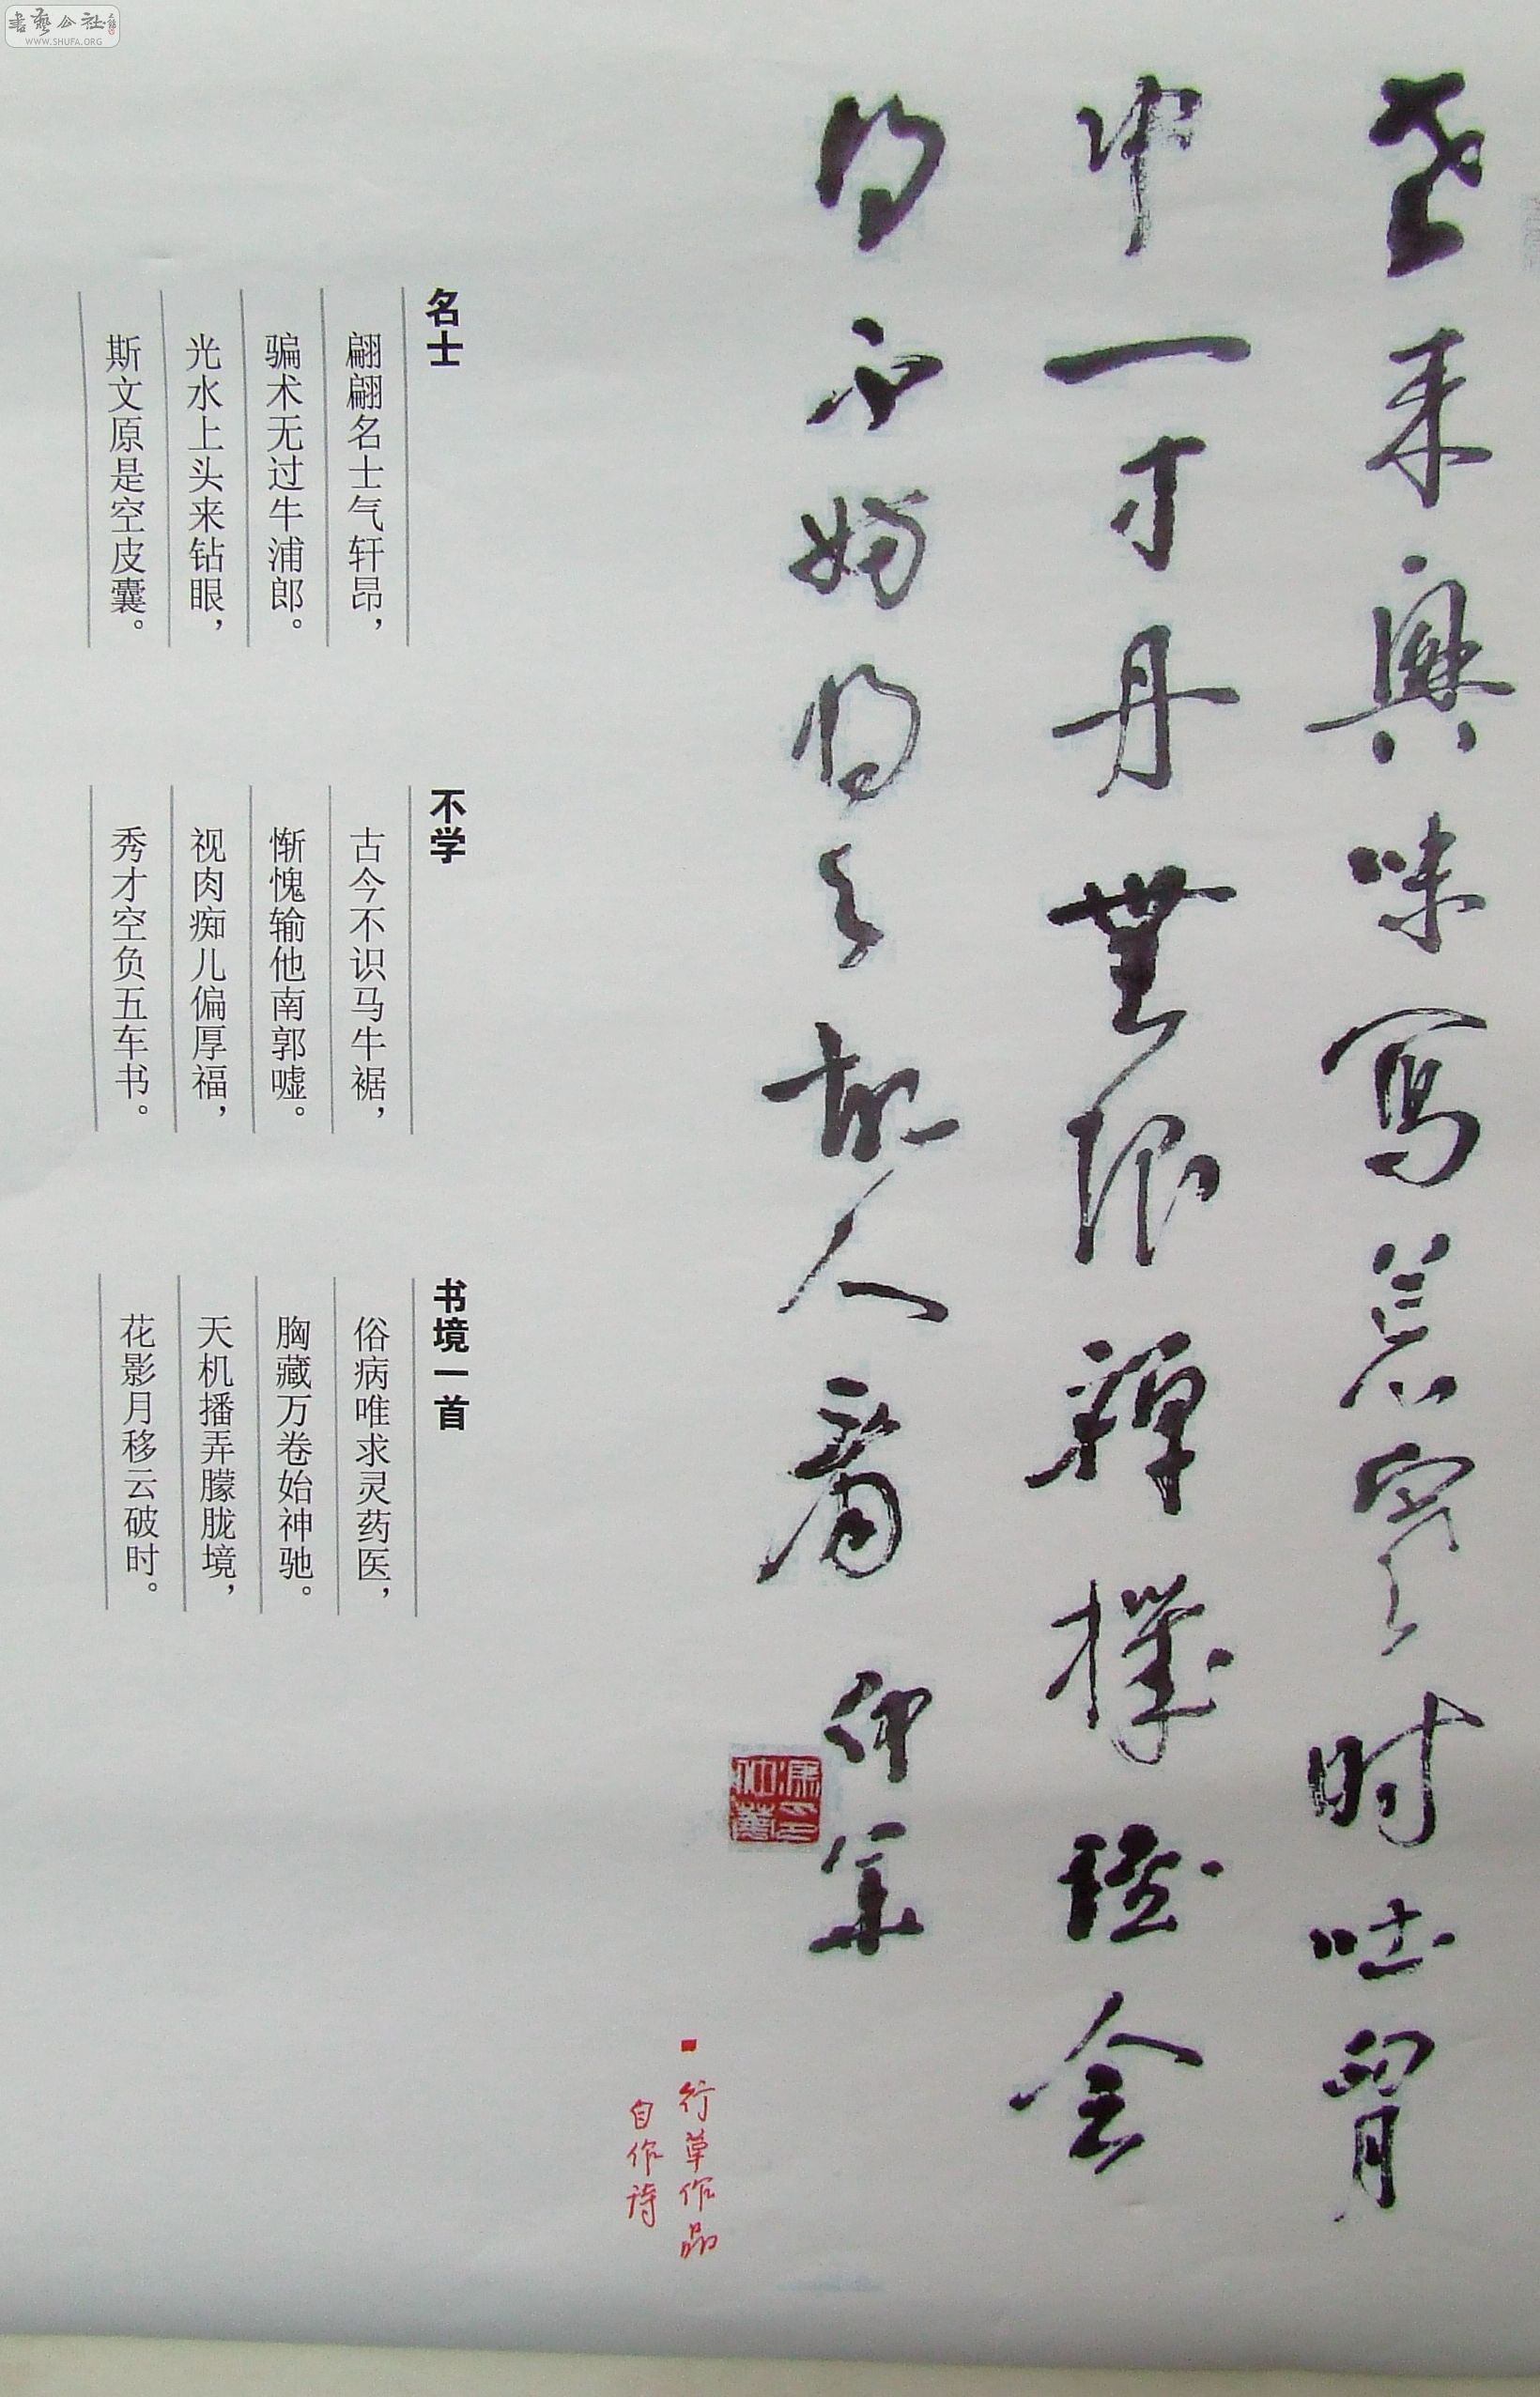 老来興味寫荒寒时吐胷
中一寸丹無限禪機会
得不妨将与故人看 仲
行草作品
自作诗
名士
翩翩名士气轩昂，
骗术无过牛浦郎。
光水上头来钻眼，
斯文原是空皮囊。
不学
古今不识马牛裾，
惭愧输他南郭嘘。
视肉痴儿偏厚福，
秀才空负五车书。
书境一首
俗病唯求灵药医，
胸藏万卷始神驰。
天机播弄朦胧境，
花影月移云破时。
書藝公社
WWW.SHUFA.ORG